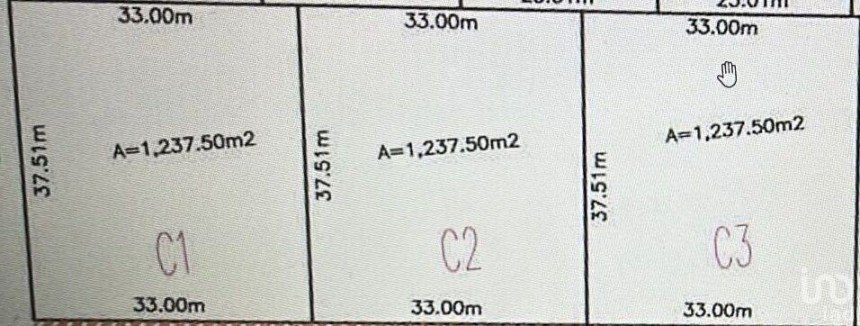 33.00m
33.00m
33.00m
37.51m
A=1,237.50m2
37.51m
A=1,237.50m2
37.51m
A=1,237.50m2
C1
C2
C3
33.00m
33.00m
33.00m